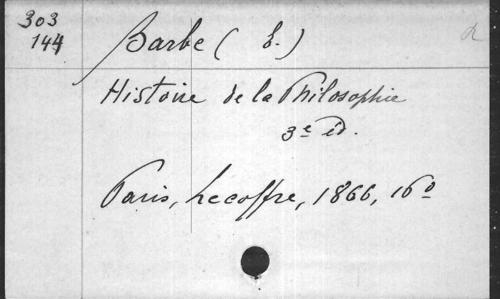 303
144
Barbe ( E. )
Histoire de la Philosophie
3e éd.
Paris, Lecoffre, 1866, 16o